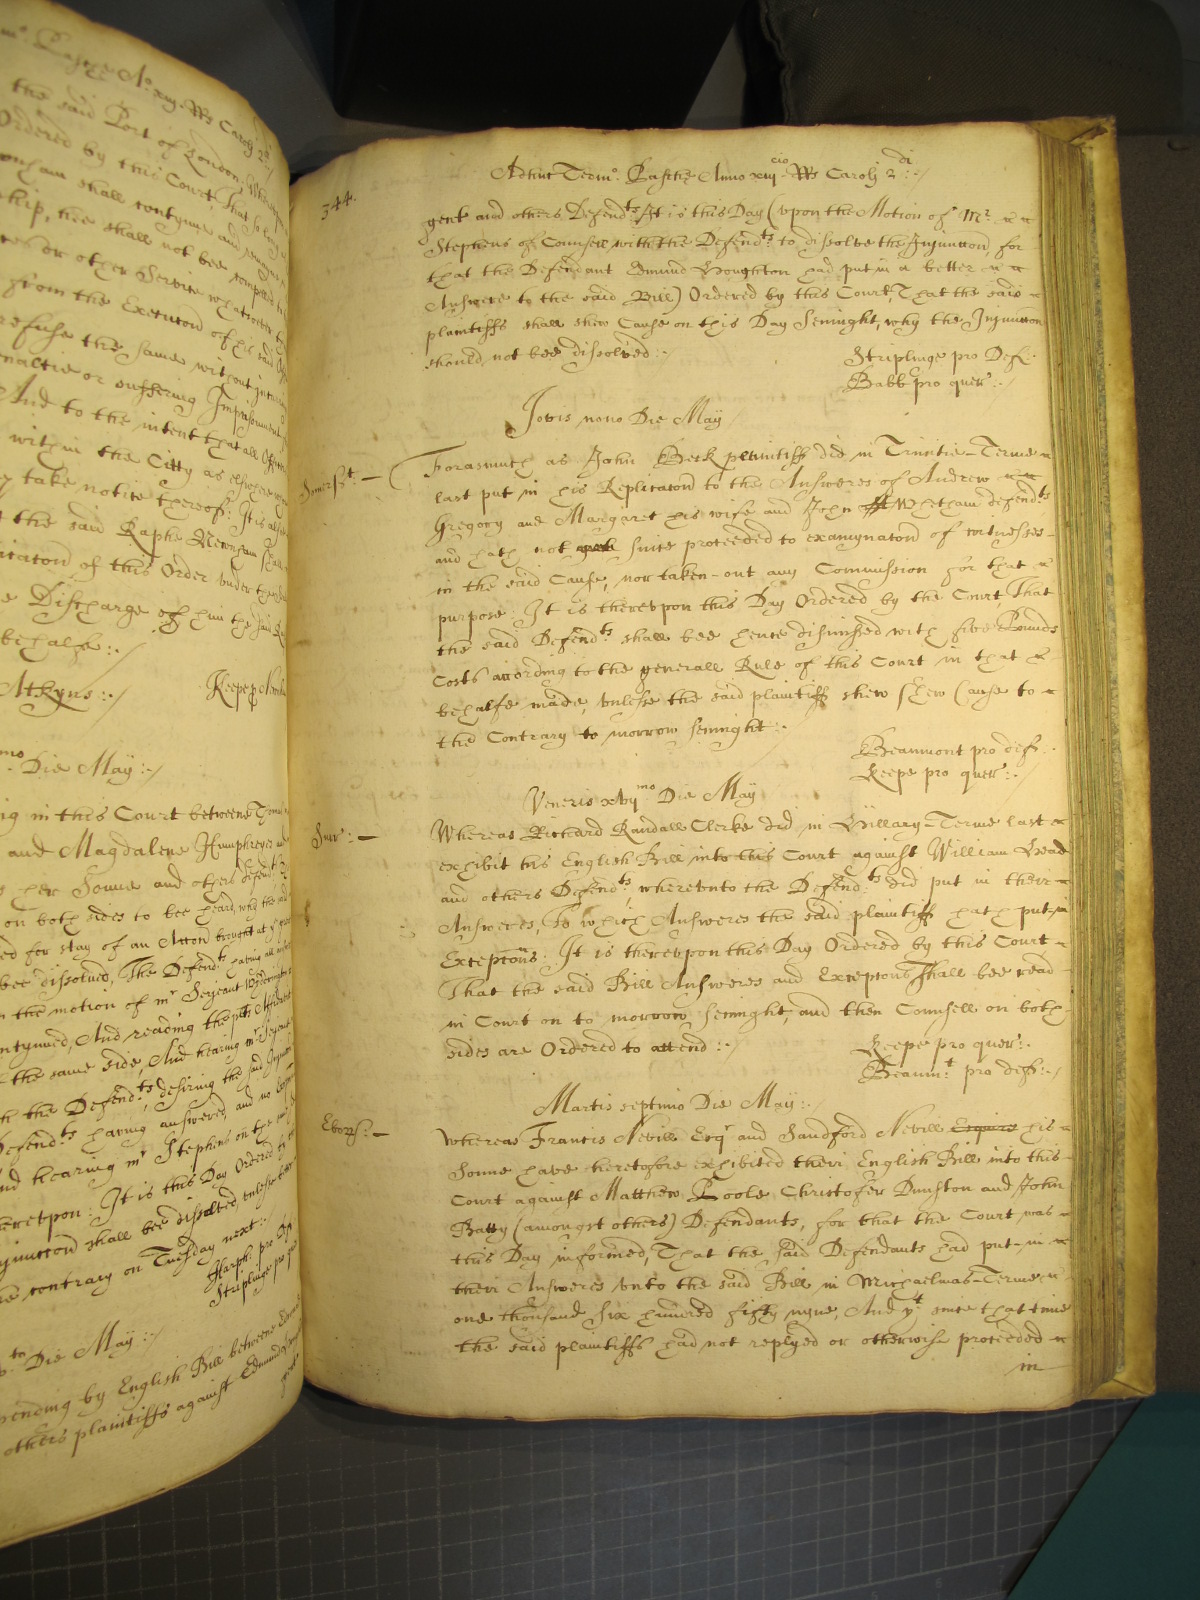 the said Port of London,
Ordered by this Court, That so long
shall contynue and remayne
ship, hee shall not bee compelled to
or other Service whatsoever
from the Execucon of his said
refuse the same without
penaltie or suffering Imprisonment
And to the intent that all
within the Citty as elsewhere
take notice thereof: It is
the said Raphe Newnham shall
of this Order under
Discharge of him the said
behalfe :-/
Athyns :-/
Die May :-/
in this Court betweene
and Magdalene Humphreyes
her Sonne and others defend.ts
on both sides to bee heard, why the
for stay of an Accon brought at
bee dissolved, The Defend.ts having
the motion of mr Serjeant
contynued, And reading the
the same side, And hearing mr
the Defend.ts desiring the said
Defend.ts having answered, and no
And hearing mr Stephens on the
thereupon: It is this Day Ordered
Injunccon shall bee dissolved, unlesse
the contrary on Tuesday next:
Harph: pro
Striplinge pro
to Die May :-/
pending by English Bill betweene
others plaintiffs against Edmund
344.
Adhuc Term.o Paschæ Anno xiij cio Rs Caroli 2 di :-/
gent and others Defend.ts It is this Day (upon the Motion of Mr.
Stephens of Counsell with the Defend.ts to dissolve the Injunccon, for
that the Defendant Edmund Boughton had put in a better
Answere to the said Bill) Ordered by this Court, That the said
plaintiffs shall shew Cause on this Day Seninght, why the Injunccon
should not bee dissolved :-
Striplinge pro Def.
Babb pro quer :-/
Jovis nono Die May /
Somerst. — Forasmuch as John Beck plaintiff did in Trinitie-Terme
last put in his Replicacon to the Answeres of Andrew
Gregory and Margaret his wife and John Whetham defend.ts
and hath not since proceeded to examynacon of witnesses
in the said Cause, nor taken-out any Commission for that
purpose: It is thereupon this Day Ordered by the Court, That
the said Defend.ts shall bee hence dismissed with five Pounds
Costs according to the generall Rule of this Court in that
behalfe made, unlesse the said plaintiff shew shew Cause to
the Contrary to morrow seninght :-
Beaumont pro def. :-
Keepe pro quer :-/
Veneris xvij mo Die May
Surr: — Whereas Richard Randall Clerke did in Hillary-Terme last
exhibit his English Bill into this Court against William Head
and others Defend.ts, whereunto the Defend.ts did put in their
Answeres, To which Answeres the said plaintiff hath put-in
Excepcons: It is thereupon this Day Ordered by this Court
That the said Bill Answeres and Excepcons shall bee read
in Court on to morrow seninght, and then Counsell on both
sides are Ordered to attend :-
Keepe pro quer :-
Beaum.t pro def. :-/
Martis septimo Die May :-
Eborr: — Whereas Francis Nevill Esqr and Sandford Nevill Esquire his
Sonne have heretofore exhibited their English Bill into this
Court against Matthew Poole, Christofer Dunston and John
Batty (amongst others) Defendants, for that the Court was
this Day informed, That the said Defendants had put-in
their Answeres unto the said Bill in Michaelmas-Terme
one thousand six hundred fifty nyne, And yt since that time
the said plaintiffs had not replyed or otherwise proceeded
in